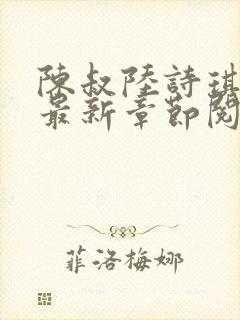 陳叔陸詩琪
最新章節閱
菲洛梅娜